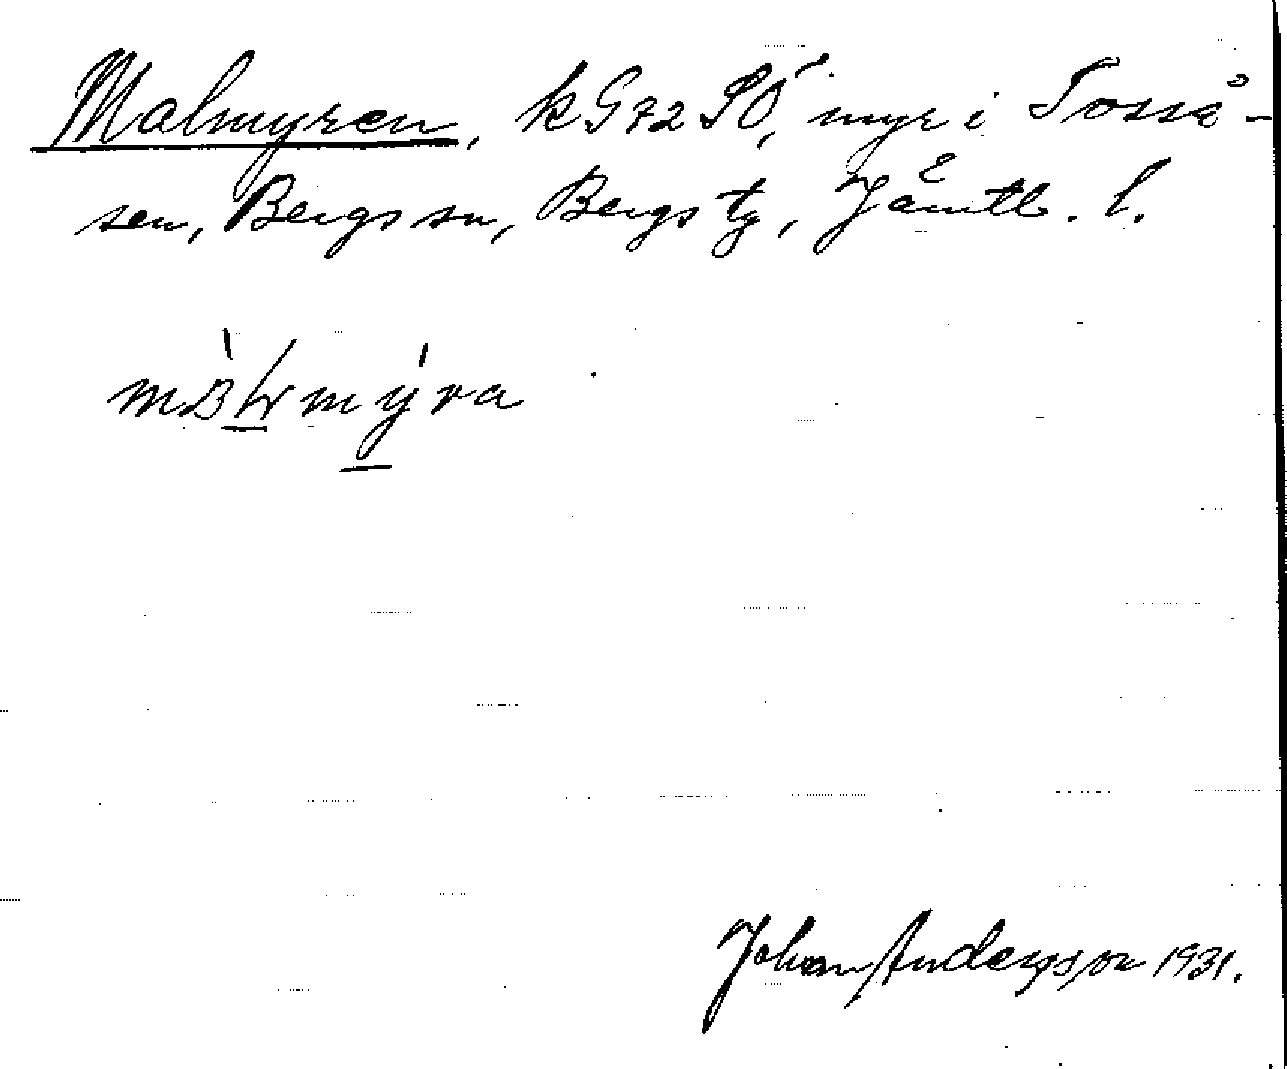 Malmyren, kG72SO, myr i Tosså-
sen, Bergs sn, Bergs tg, Jämtl. l.
Johan Andersson 1931.